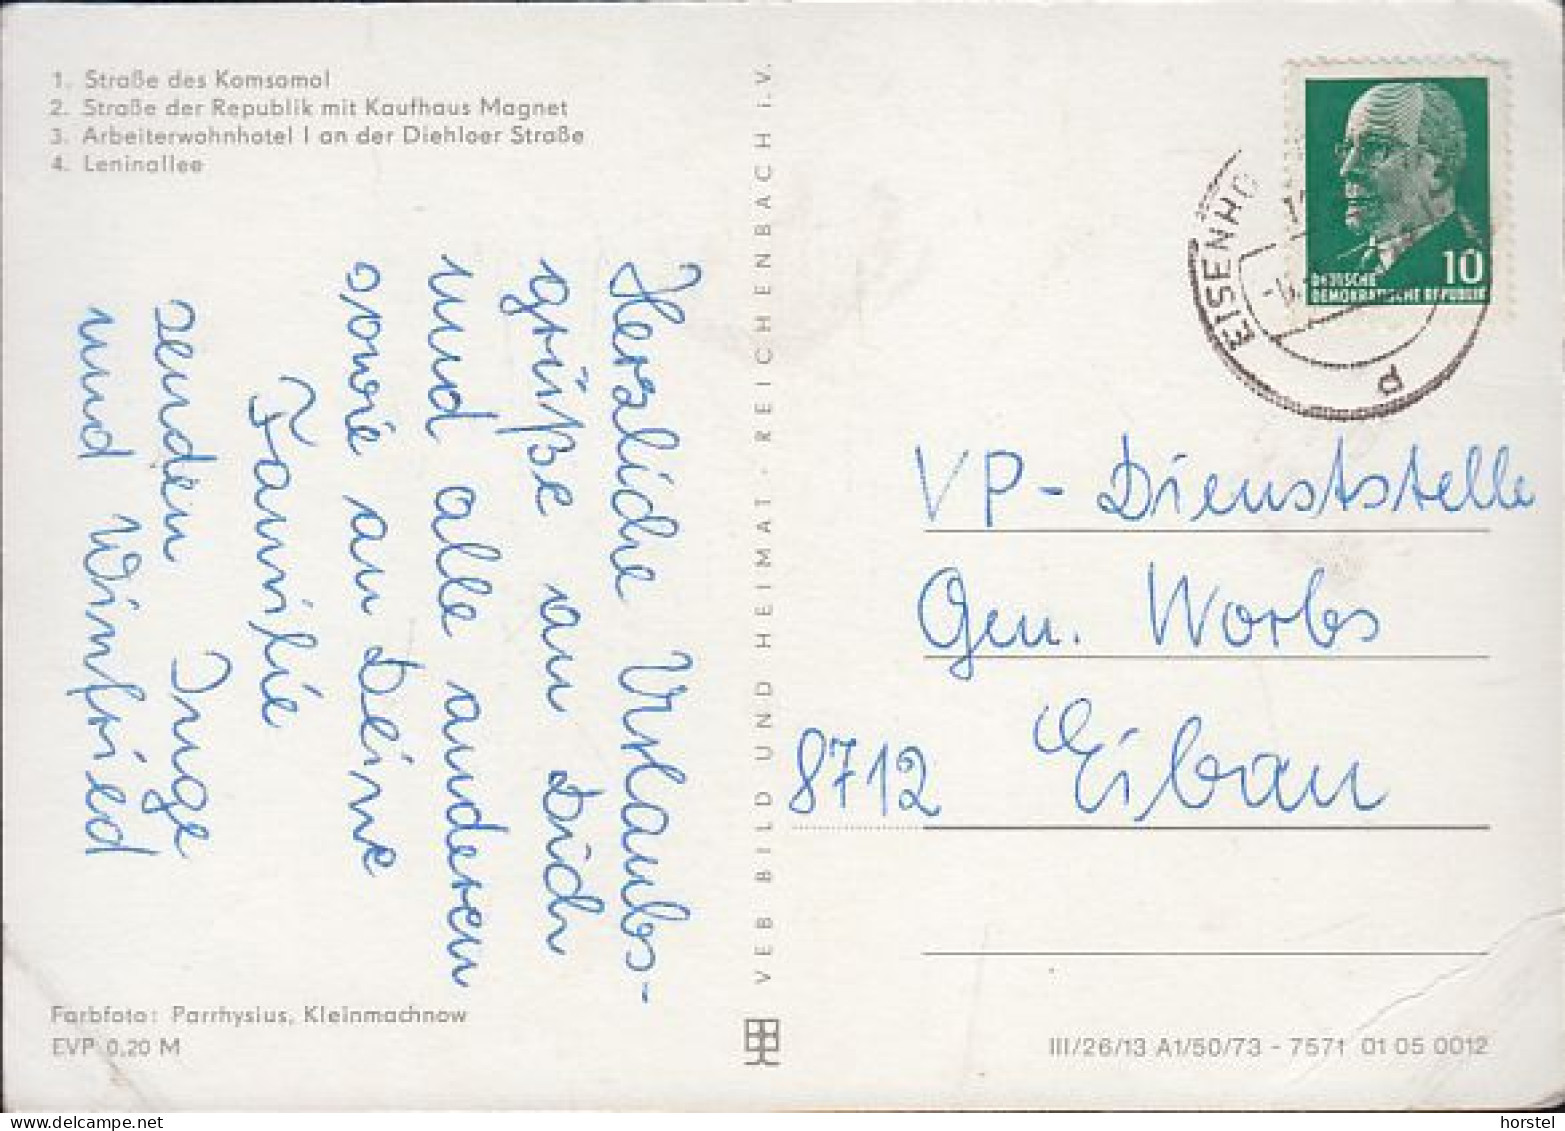 1. Straße des Komsomol
2. Straße der Republik mit Kaufhaus Magnet
3. Arbeiterwohnhotel I an der Diehloer Straße
4. Leninallee
Herzliche Urlaubs-
grüße an Dich
und alle anderen
sowie an Deine
Familie
senden Inge
und Winfried
Farbfoto: Parrhysius, Kleinmachnow
EVP 0,20 M
VEB BILD UND HEIMAT · REICHENBACH i.V.
10
DEUTSCHE
DEMOKRATISCHE REPUBLIK
EISENH
d
VP-Dienststelle
Gen. Worbs
8712 Eibau
III/26/13 A1/50/73 - 757† 01 05 0012
horstel